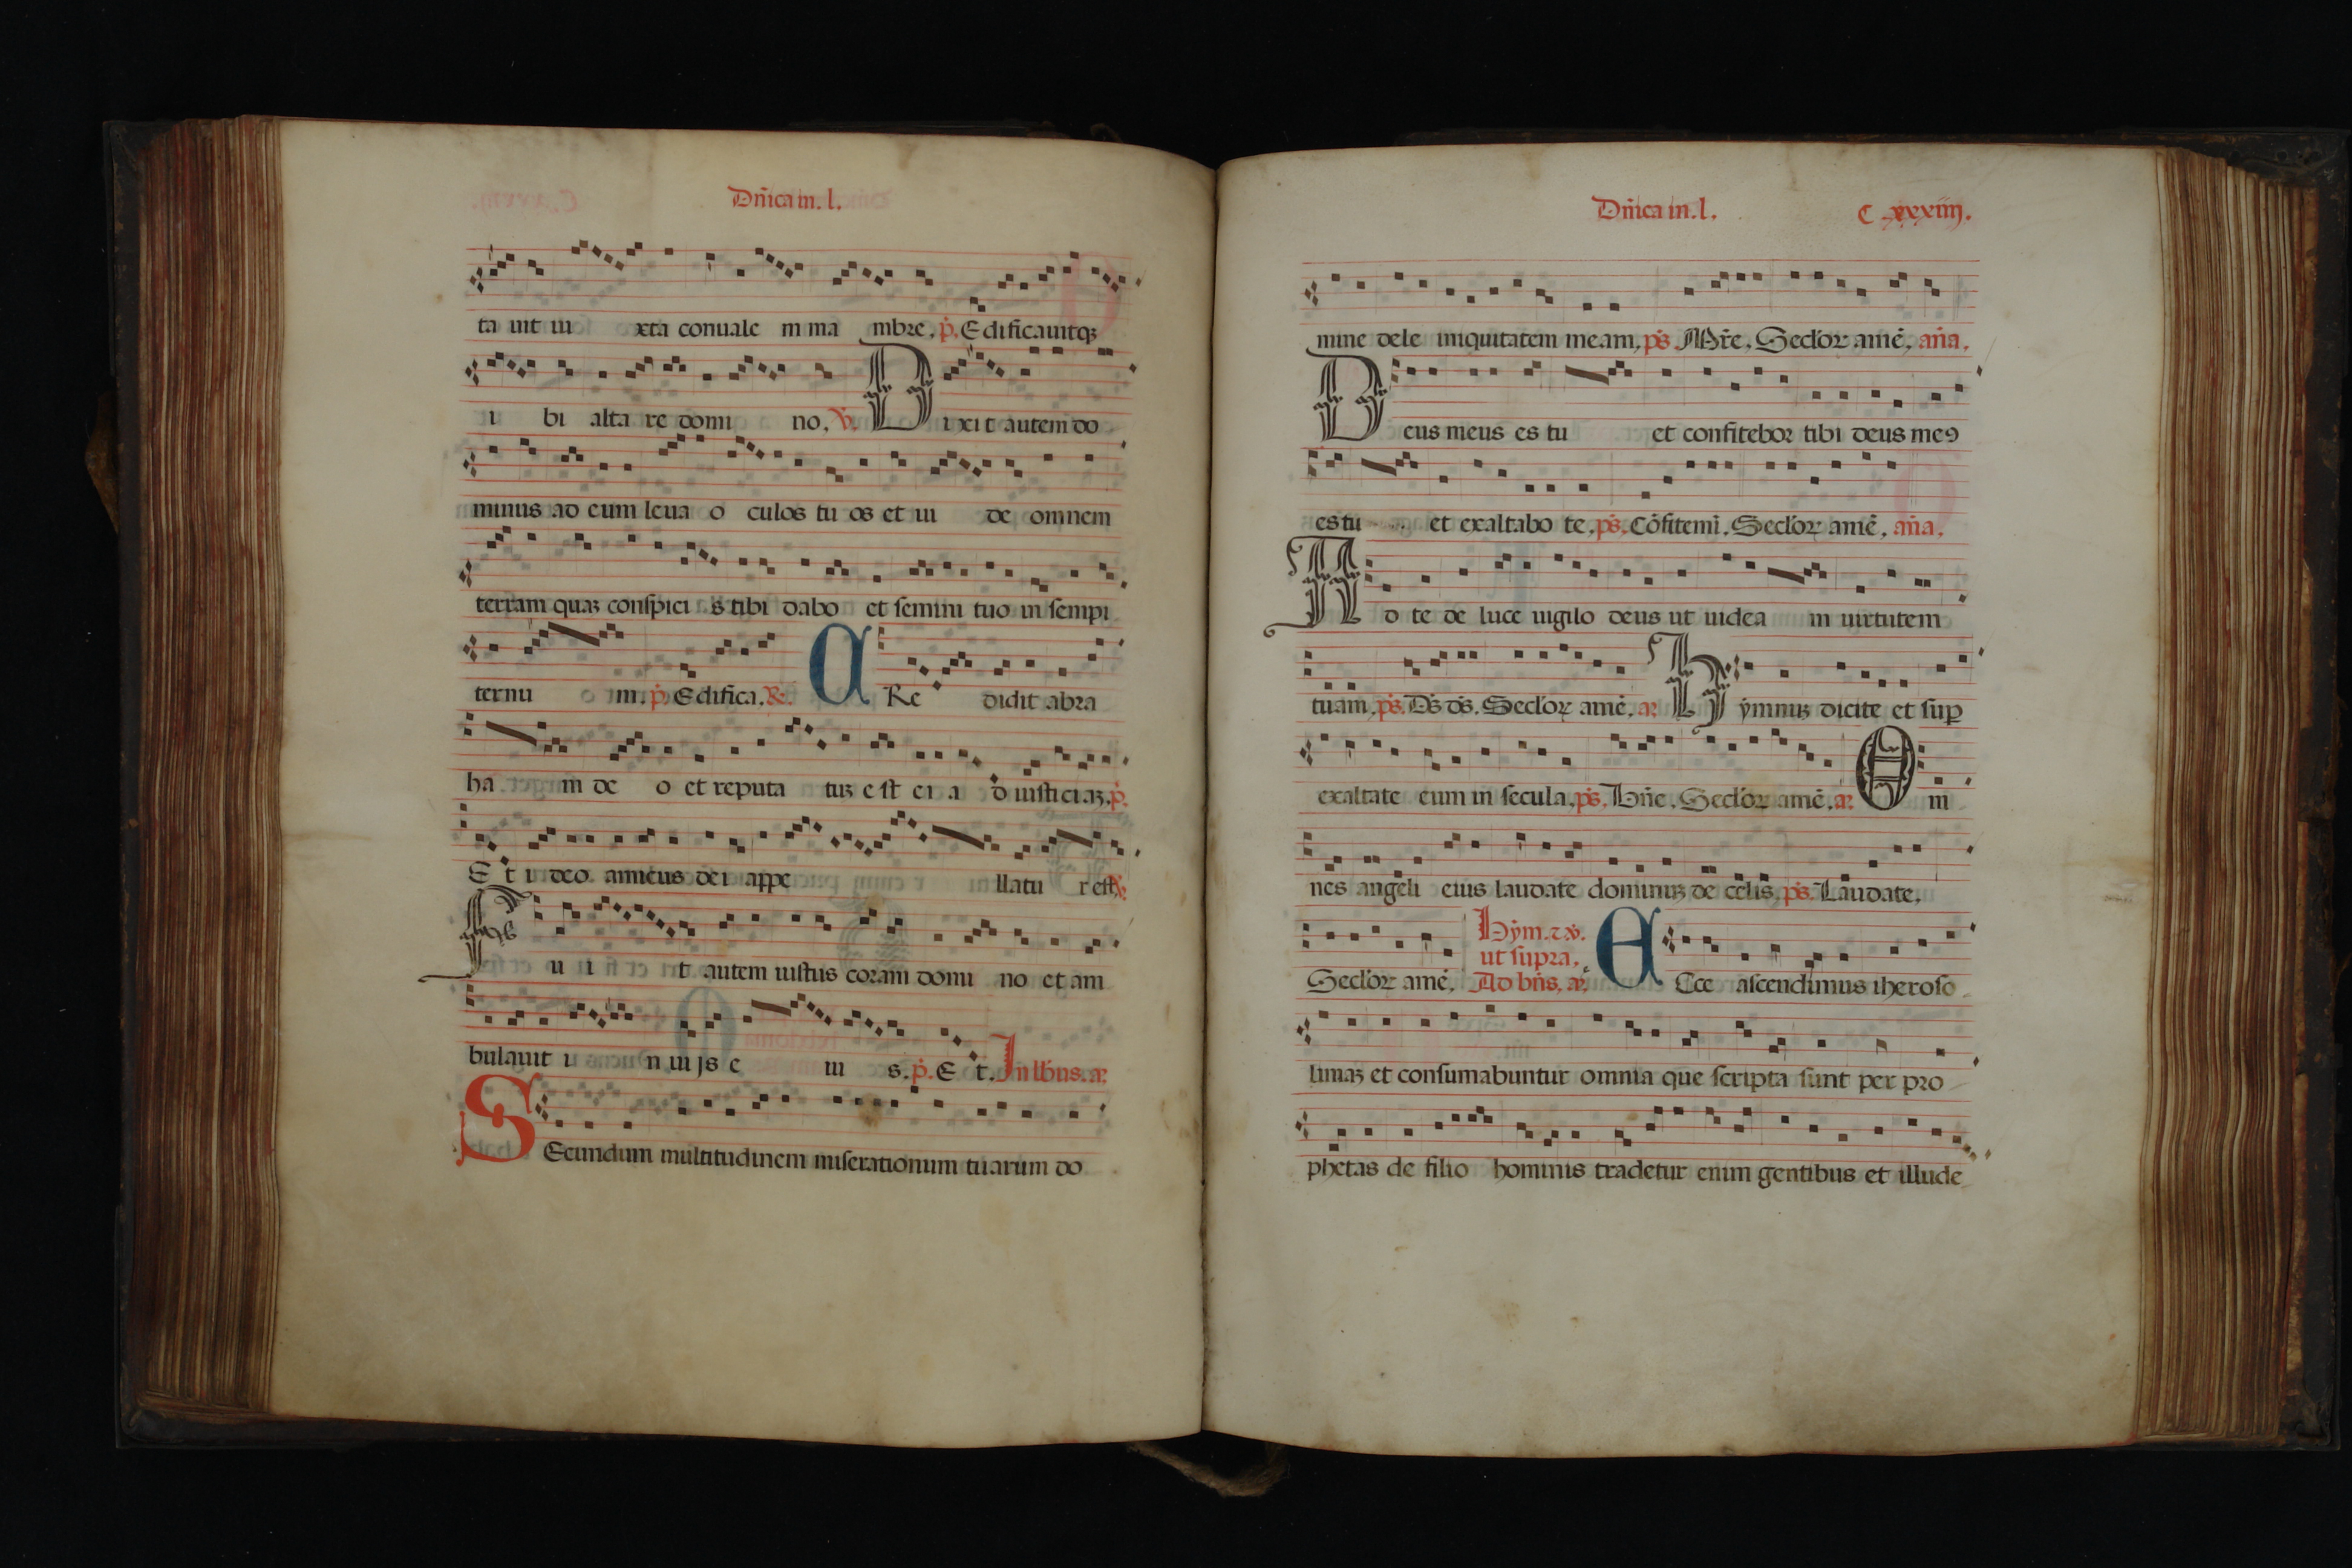 Dn̄ica in. l.
ta uit iu xta conualle m ma mbre. p̄. Edificauitqꝫ
i bi alta re domi no. v̄. D ixit autem do
minus ad eum leua o culos tu os et ui de omnem
terram quaꝫ conspici s tibi dabo et semini tuo in sempi
ternu m. p̄. Edifica. R. C Re didit abra
ha m de o et reputa tuꝫ e st ei a d iusticiaꝫ. p̄.
E t i deo amicus dei appe llatu r est v̄.
F u i t autem iustus coram domi no et am
bulauit i n uijs e iu s. p̄. E t. In lb̄us. ar̄
S Ecundum multitudinem miserationum tuarum do
Dn̄ica in. l. C xxxiiij.
mine dele iniquitatem meam, ps̄. Mr̄e. Seclor̄ amē. an̄a.
D eus meus es tu et confitebor tibi deus meꝯ
es tu et exaltabo te, ps̄. Cōfitemī. Seclor̄ amē. an̄a.
A d te de luce uigilo deus ut uidea m uirtutem
tuam, ps̄. Ds̄ ds̄. Seclor̄ amē. ar̄ H ẏmnuꝫ dicite et suꝑ
exaltate eum in secula. ps̄. Bn̄e. Seclor̄ amē. ar̄ O m
nes angeli eius laudate dominuꝫ de celis. ps̄. Laudate.
Seclor̄ amē. Hẏm. ⁊ v̄. ut supra. Ad bn̄s. ar̄. E Cce ascendimus iheroso
limaꝫ et consumabuntur omnia que scripta sunt per pro
phetas de filio hominis tradetur enim gentibus et illude